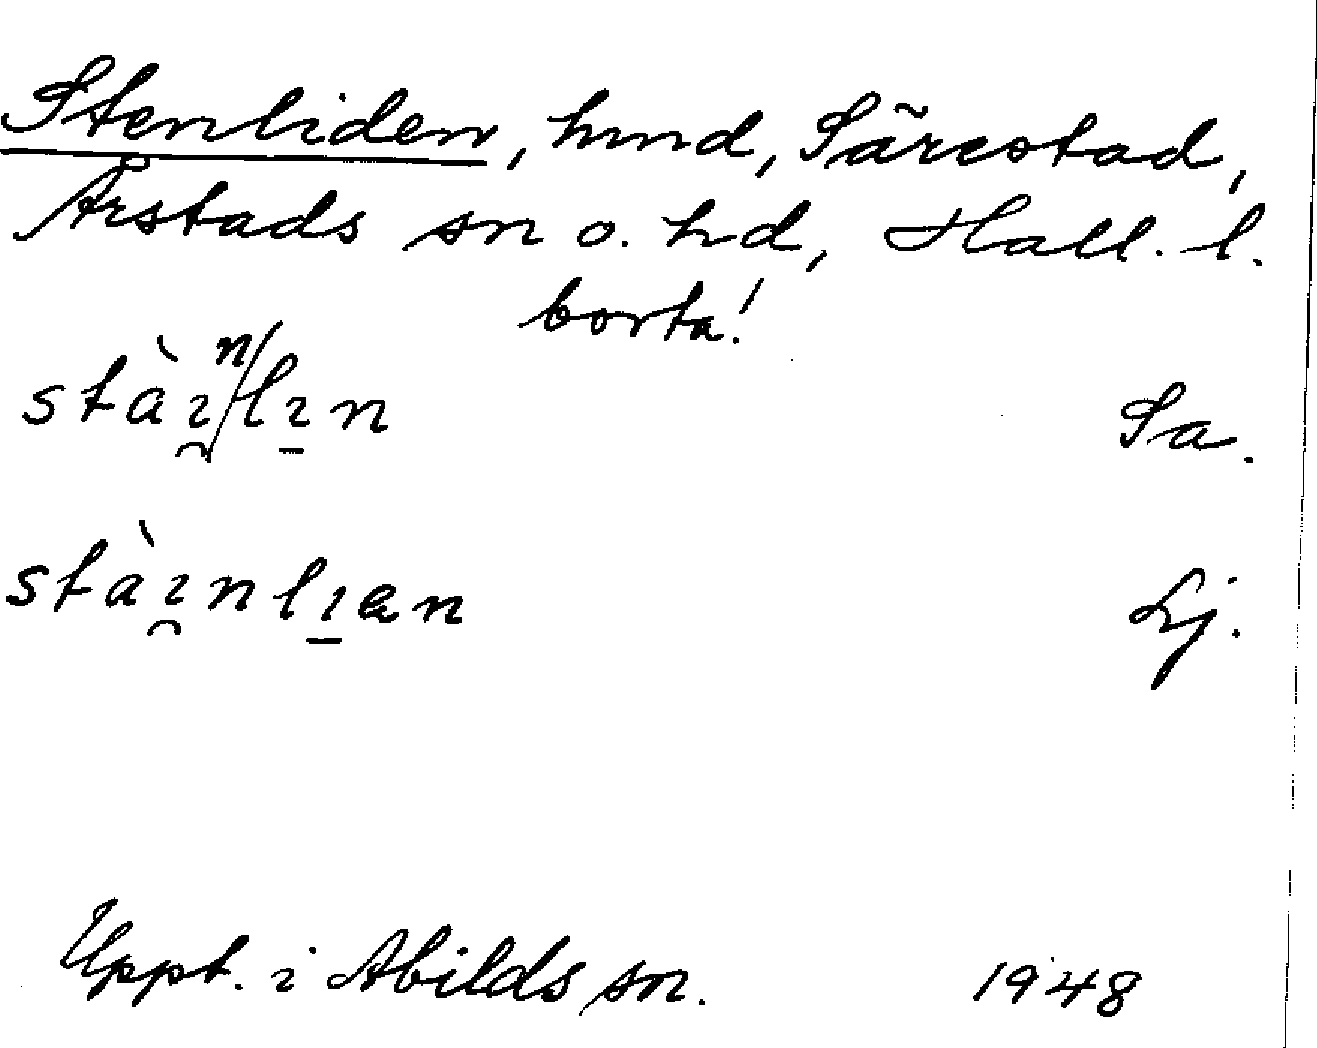 Stenliden, hmd, Särestad,
Årstads sn o. hd, Hall. l.
borta!
stàı̯n/lın Sa.
stàı̯nlıan Lj.
Uppt. i Abilds sn. 1948